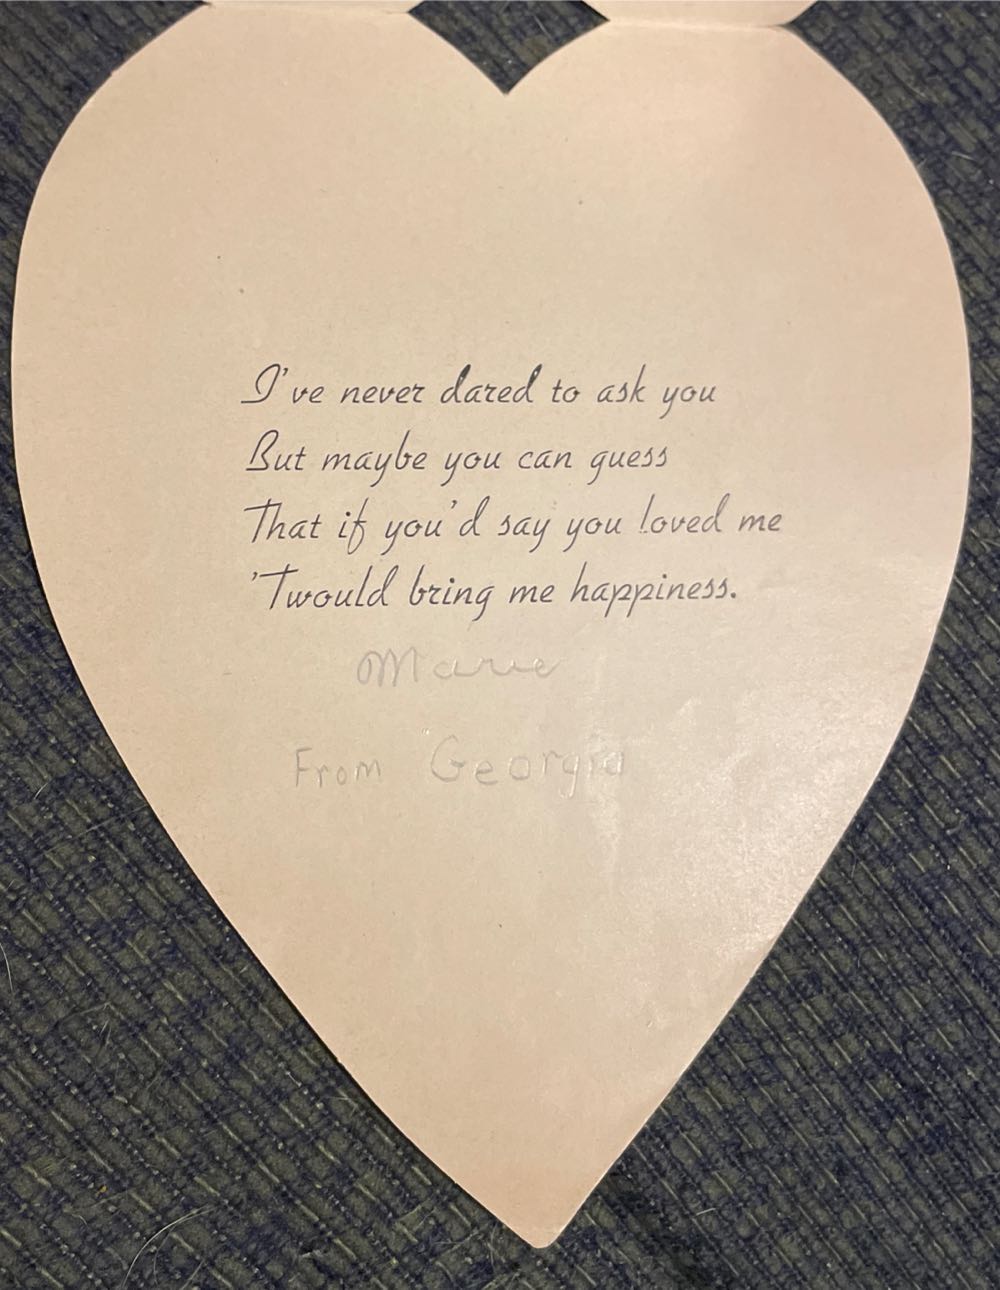 I've never dared to ask you
But maybe you can guess
That if you'd say you loved me
'Twould bring me happiness.
Marie
From Georgia